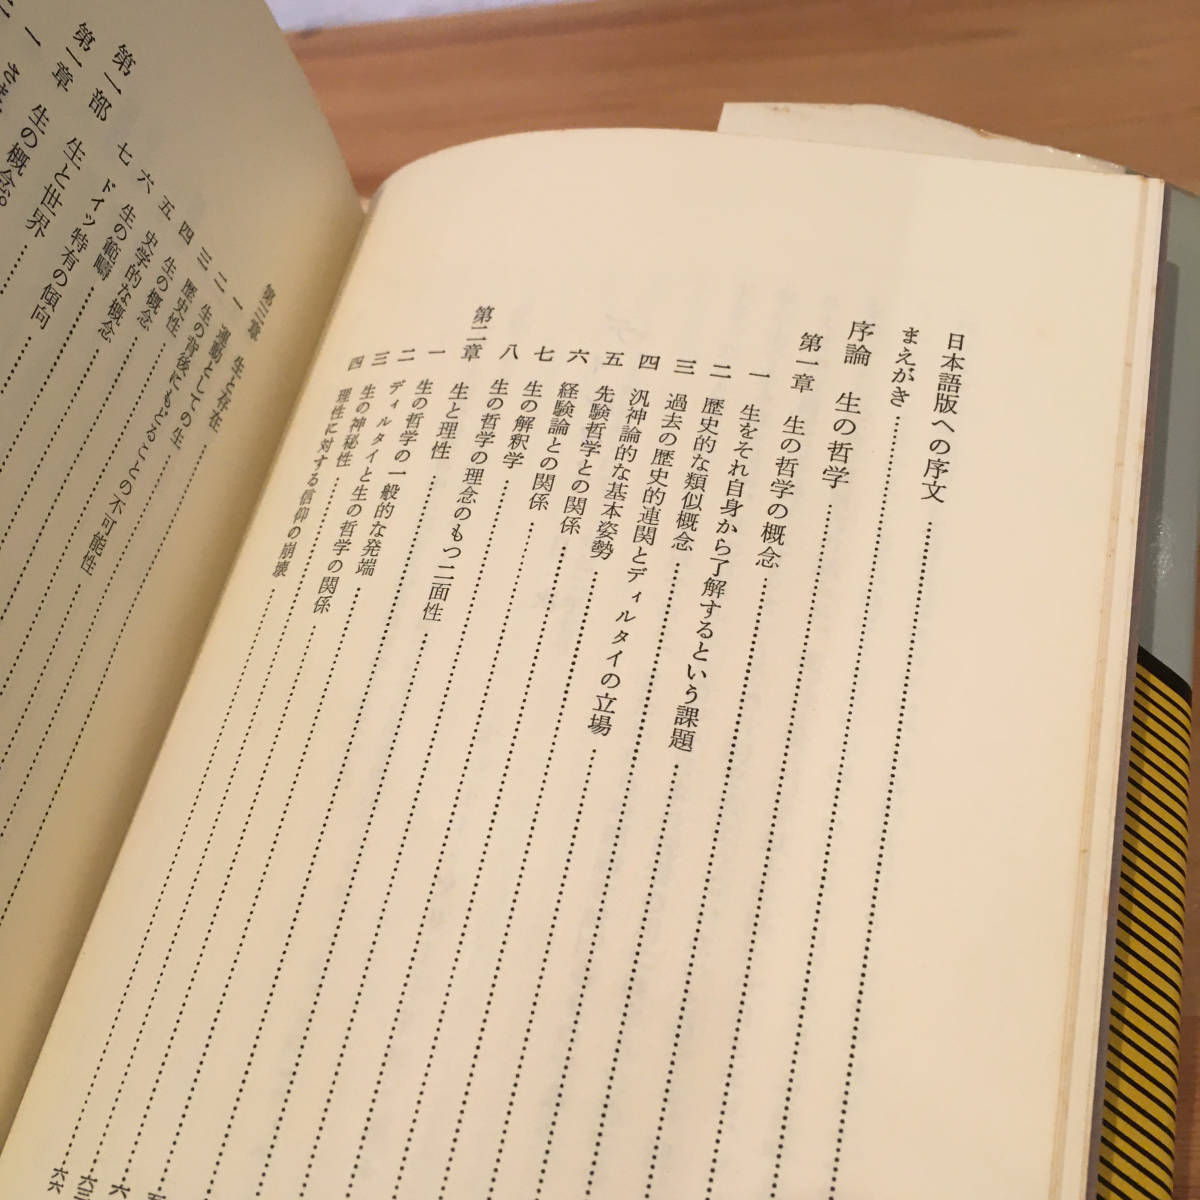 日本語版への序文
まえがき
序論 生の哲学
第一章 生の哲学の概念
一 生をそれ自身から了解するという課題
二 歴史的な類似概念
三 過去の歴史的連関とディルタイの立場
四 汎神論的な基本姿勢
五 先験哲学との関係
六 経験論との関係
七 生の解釈学
八 生の哲学の理念のもつ二面性
第二章 生と理性
一 生の哲学の一般的な発端
二 ディルタイと生の哲学の関係
三 生の神秘性
四 理性に対する信仰の崩壊
六三
六六
第三章 生と存在
一 運動としての生
二 生の背後にもどることの不可能性
三 歴史性
四 生の概念
五 史学的な概念
六 生の範疇
七 ドイツ特有の傾向
第一部 生と世界
第一章 生の概念。
一